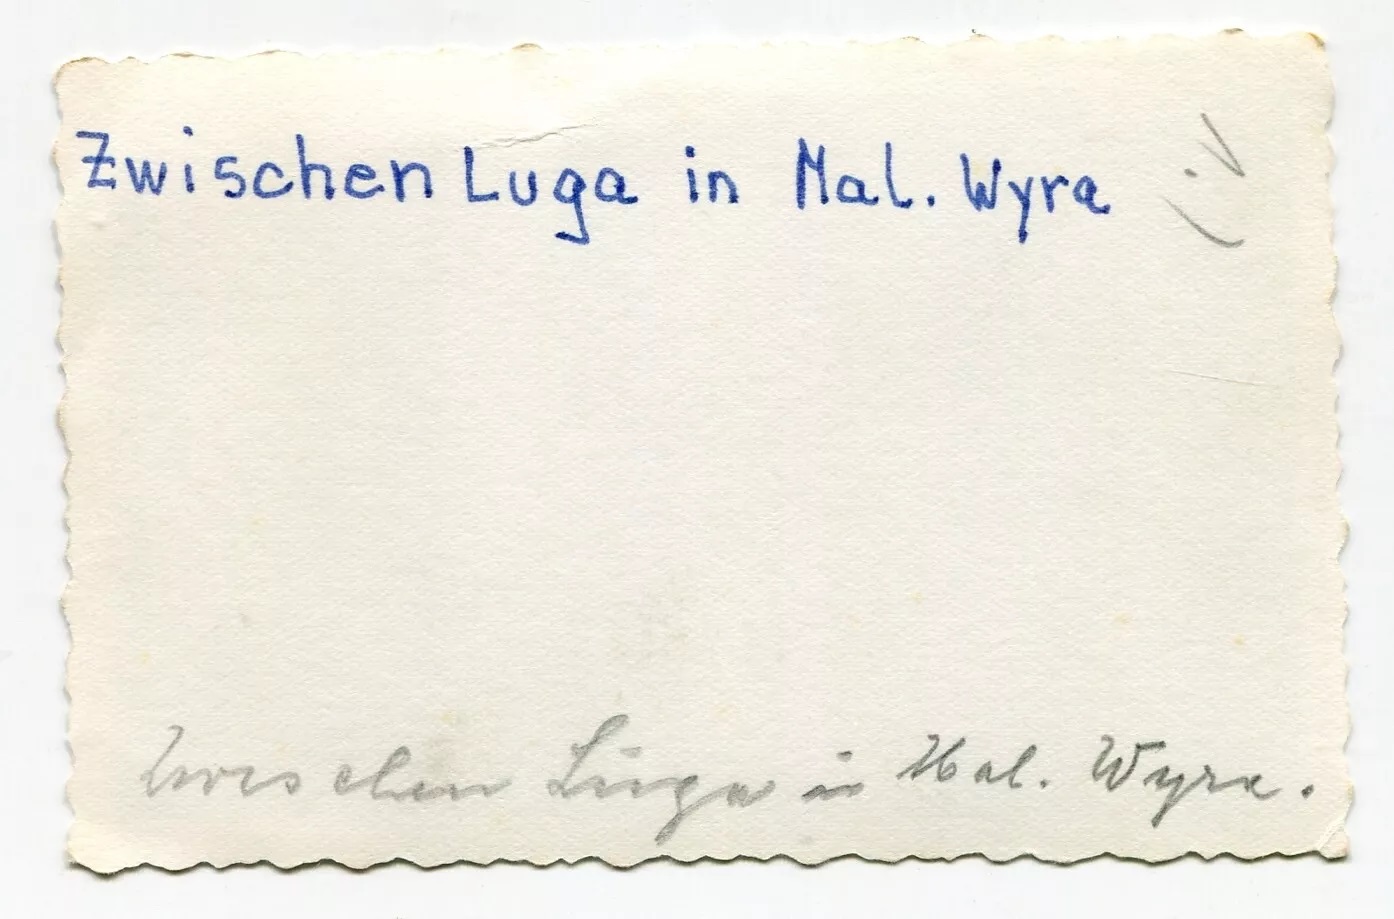 Zwischen Luga in Mal. Wyra
Zwischen Luga in Mal. Wyra.